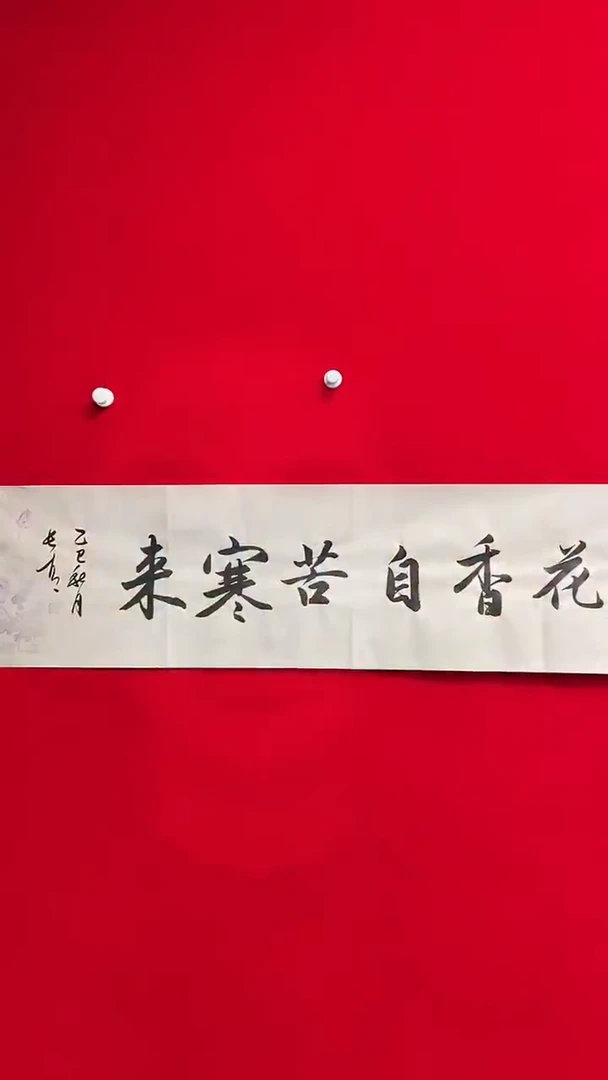 花香自苦寒来
乙巳秋月